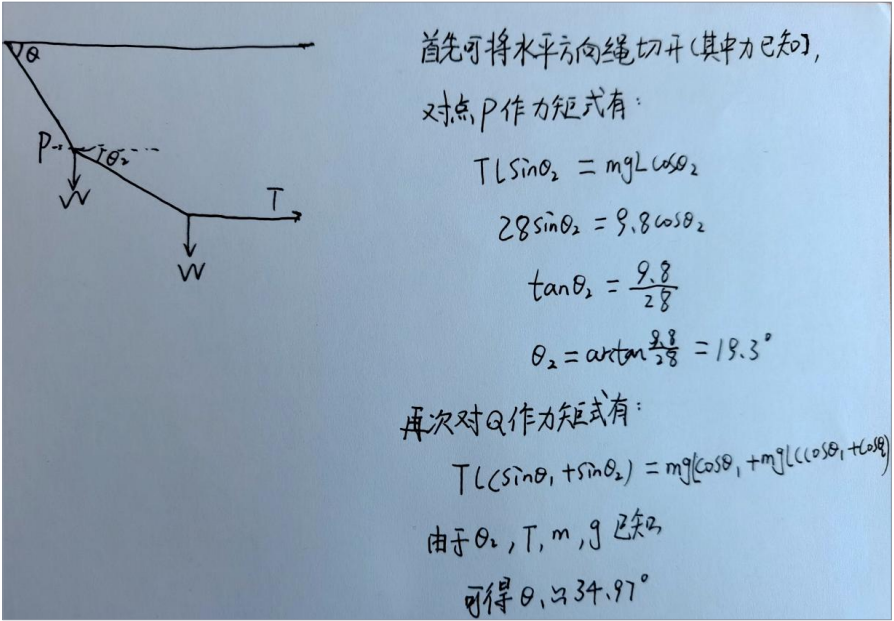 Q
P
θ₂
W
T
W
首先可将水平方向绳切开(其中力已知),
对点P作力矩式有:
TLsinθ₂ = mgLcosθ₂
28sinθ₂ = 9.8cosθ₂
tanθ₂ = 9.8/28
θ₂ = arctan 9.8/28 = 19.3°
再次对Q作力矩式有:
TL(sinθ₁+sinθ₂) = mgLcosθ₁+mgL(cosθ₁+cosθ₂)
由于θ₂,T,m,g已知
可得θ₁≈34.97°